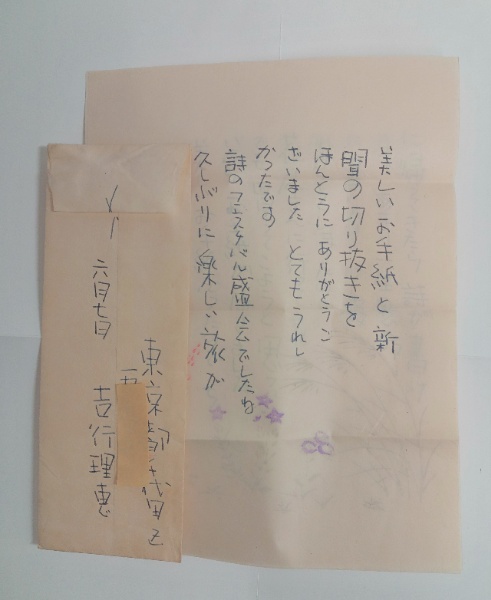 美しいお手紙と新
聞の切り抜きを
ほんとうにありがとうご
ざいました とてもうれし
かったです
詩のフェステバル盛会でしたね
久しぶりに楽しい旅が
東京都千代田区
五
吉行理恵
六月七日
〆